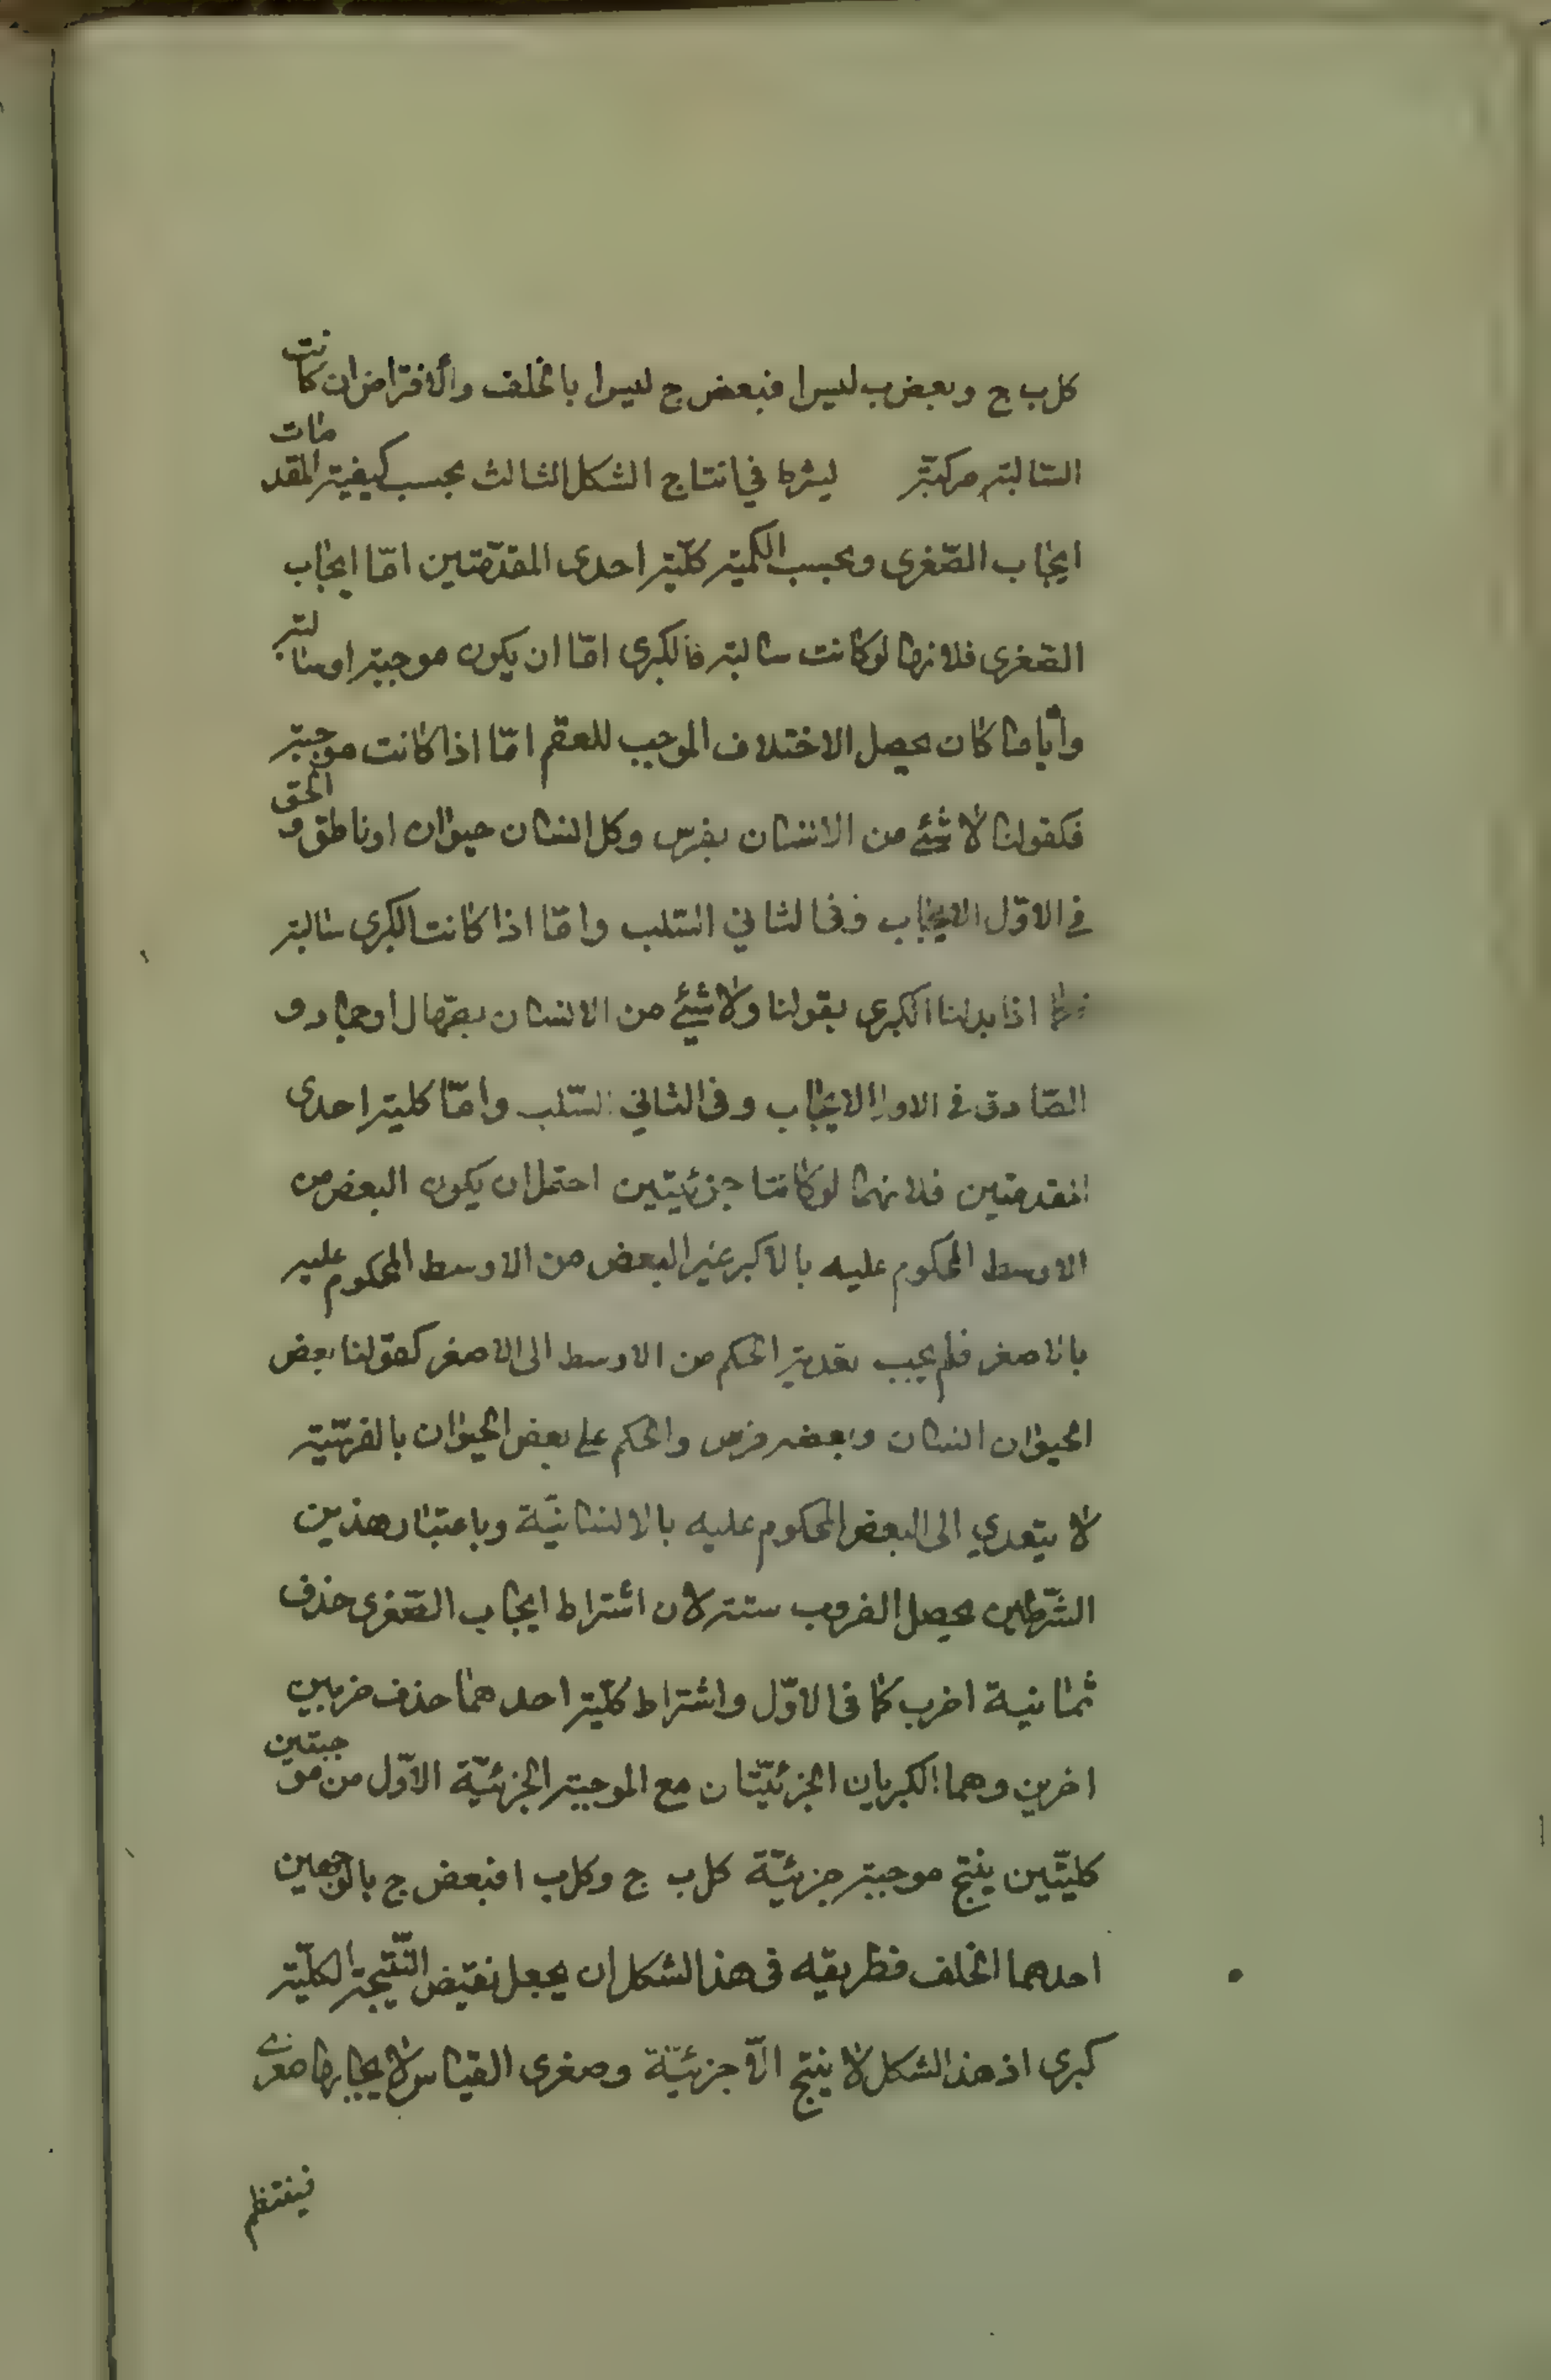 كل ب ج وبعض ب ليس ا فبعض ج ليس ا بالخلف والافتراض ان كانت
السّالبة مركبّة يشترط في انتاج الشكل الثالث بحسب كيفية المقدمات
ايجاب الصّغرى وبحسب الكمية كلّية احدى المقدّمتين امّا ايجاب
الصّغرى فلانها لو كانت سالبة فالكبرى امّا ان يكون موجبة او سالبة
وأياما كان يحصل الاختلاف الموجب للعقم امّا اذا كانت موجبة
فكقولنا لا شئ من الانسان بفرس وكل انسان حيوان او ناطق والحق
في الاوّل الايجاب وفي الثاني السّلب وامّا اذا كانت الكبرى سالبة
فكما اذا بدلنا الكبرى بقولنا ولا شئ من الانسان بصّهال او حمار و
الصّادق في الاول الايجاب وفي الثاني السّلب وامّا كلية احدى
المقدمتين فلانهما لو كانتا جزئيتين احتمل ان يكون البعض من
الاوسط المحكوم عليه بالاكبر غير البعض من الاوسط المحكوم عليه
بالاصغر فلم يجب تعدية الحكم من الاوسط الى الاصغر كقولنا بعض
الحيوان انسان وبعضه فرس والحكم على بعض الحيوان بالفرسّية
لا يتعدي الى البعض المحكوم عليه بالانسانيّة وباعتبار هذين
الشّرطين يحصل الضروب ستة لان اشتراط ايجاب الصّغرى حذف
ثمانية اضرب كما في الاوّل واشتراط كلّية احدهما حذف ضربين
اخرين وهما الكبريان الجزئيّتان مع الموجبة الجزئيّة الاوّل من موجبتين
كليّتين ينتج موجبة جزئيّة كل ب ج وكل ب ا فبعض ج ا بالوجهين
احدهما الخلف فطريقه في هذا الشكل ان يجعل نقيض النّتيجة الكلّية
كبرى اذ هذا الشكل لا ينتج الّا جزئيّة وصغرى القياس لايجابها صغرى
فينتظم